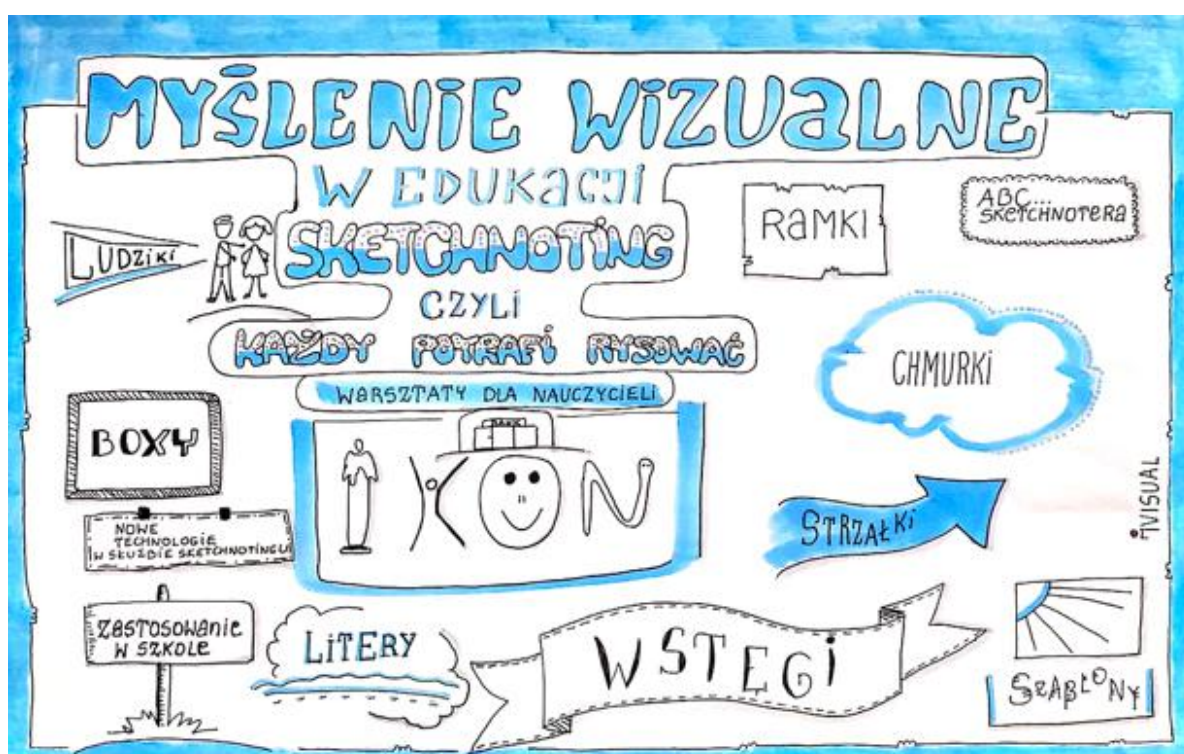 MYŚLENIE WIZUALNE
W EDUKACJI
SKETCHNOTING
CZYLI
KAŻDY POTRAFI RYSOWAĆ
WARSZTATY DLA NAUCZYCIELI
LUDZIKI
RAMKI
ABC...
SKETCHNOTERA
CHMURKI
BOXY
BANK IKON
NOWE
TECHNOLOGIE
W SŁUŻBIE SKETCHNOTINGU
STRZAŁKI
ZASTOSOWANIE
W SZKOLE
LITERY
WSTĘGI
SZABLONY